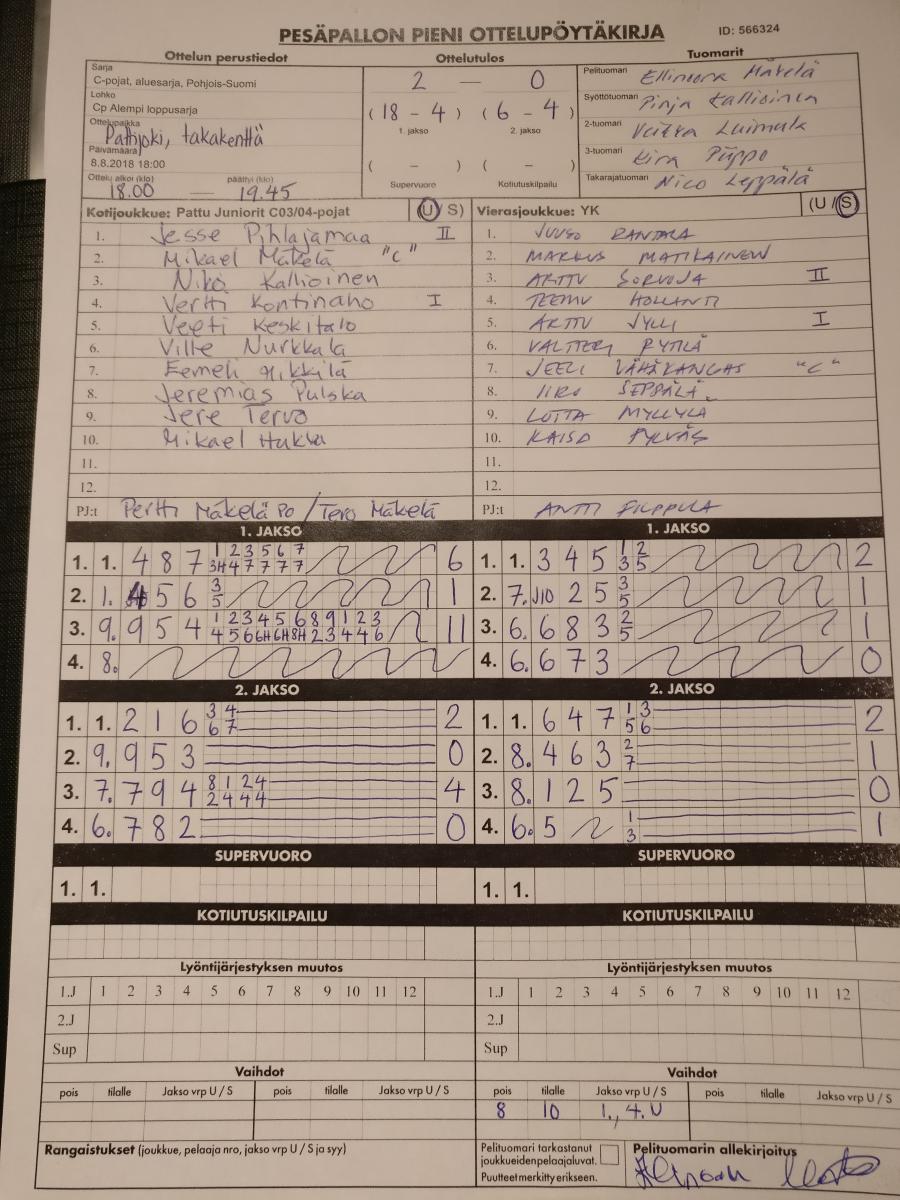 PESÄPALLON PIENI OTTELUPÖYTÄKIRJA
ID: 566324
Ottelun perustiedot
Ottelutulos
Tuomarit
Sarja
C-pojat, aluesarja, Pohjois-Suomi
Lohko
Cp Alempi loppusarja
Ottelupaikka
Pattijoki, takakenttä
Päivämäärä
8.8.2018 18:00
Ottelu alkoi (klo) päättyi (klo)
18.00 — 19.45
2 — 0
(18 - 4) (6 - 4)
1. jakso 2. jakso
( - ) ( - )
Supervuoro Kotiutuskilpailu
Pelituomari Ellinoora Mäkelä
Syöttötuomari Pinja Kallioinen
2-tuomari Luimula
3-tuomari Kira Piippo
Takarajatuomari Nico Leppälä
Kotijoukkue: Pattu Juniorit C03/04-pojat (U / S)
1. Jesse Pihlajamaa II
2. Mikael Mäkelä "C"
3. Niko Kallioinen
4. Vertti Kontinaho I
5. Veeti Keskitalo
6. Ville Nurkkala
7. Eemeli Hikkilä
8. Jeremias Pulska
9. Jere Tervo
10. Mikael
11.
12.
PJ:t Pertti Mäkelä PO / Tero Mäkelä
Vierasjoukkue: YK (U / S)
1. JUUSO RANTALA
2. MARKUS MATIKAINEN
3. ARTTU SORVOJA II
4. TEEMU HOLLANTI
5. ARTTU JYLLI I
6. VALTTERI RYTILÄ
7. JEELI VÄHÄKANGAS "C"
8. IIRO SEPPÄLÄ
9. LOTTA MYLLYLÄ
10. KAISA PYLVÄS
11.
12.
PJ:t ANTTI FILPPULA
1. JAKSO
1. 1. 4 8 7 1 2 3 5 6 7 6
3H 4 7 7 7 7
2. 1. 4 5 6 3 1
5
3. 9. 9 5 4 1 2 3 4 5 6 8 9 1 2 3 11
4 5 6 6H 6H 8H 2 3 4 4 6
4. 8.
1. JAKSO
1. 1. 3 4 5 1 2 2
3 5
2. 7. J10 2 5 3 1
5
3. 6. 6 8 3 2 1
5
4. 6. 6 7 3 0
2. JAKSO
1. 1. 2 1 6 3 4 2
6 7
2. 9. 9 5 3 0
3. 7. 7 9 4 8 1 2 4 4
2 4 4 4
4. 6. 7 8 2 0
2. JAKSO
1. 1. 6 4 7 1 3 2
5 6
2. 8. 4 6 3 2 1
7
3. 8. 1 2 5 0
4. 6. 5 1 1
3
SUPERVUORO
1. 1.
SUPERVUORO
1. 1.
KOTIUTUSKILPAILU
KOTIUTUSKILPAILU
Lyöntijärjestyksen muutos
1.J 1 2 3 4 5 6 7 8 9 10 11 12
2.J
Sup
Lyöntijärjestyksen muutos
1.J 1 2 3 4 5 6 7 8 9 10 11 12
2.J
Sup
Vaihdot
pois tilalle Jakso vrp U / S pois tilalle Jakso vrp U / S
Vaihdot
pois tilalle Jakso vrp U / S pois tilalle Jakso vrp U / S
8 10 1., 4. U
Rangaistukset (joukkue, pelaaja nro, jakso vrp U / S ja syy)
Pelituomari tarkastanut
joukkueidenpelaajaluvat.
Puutteet merkitty erikseen.
Pelituomarin allekirjoitus